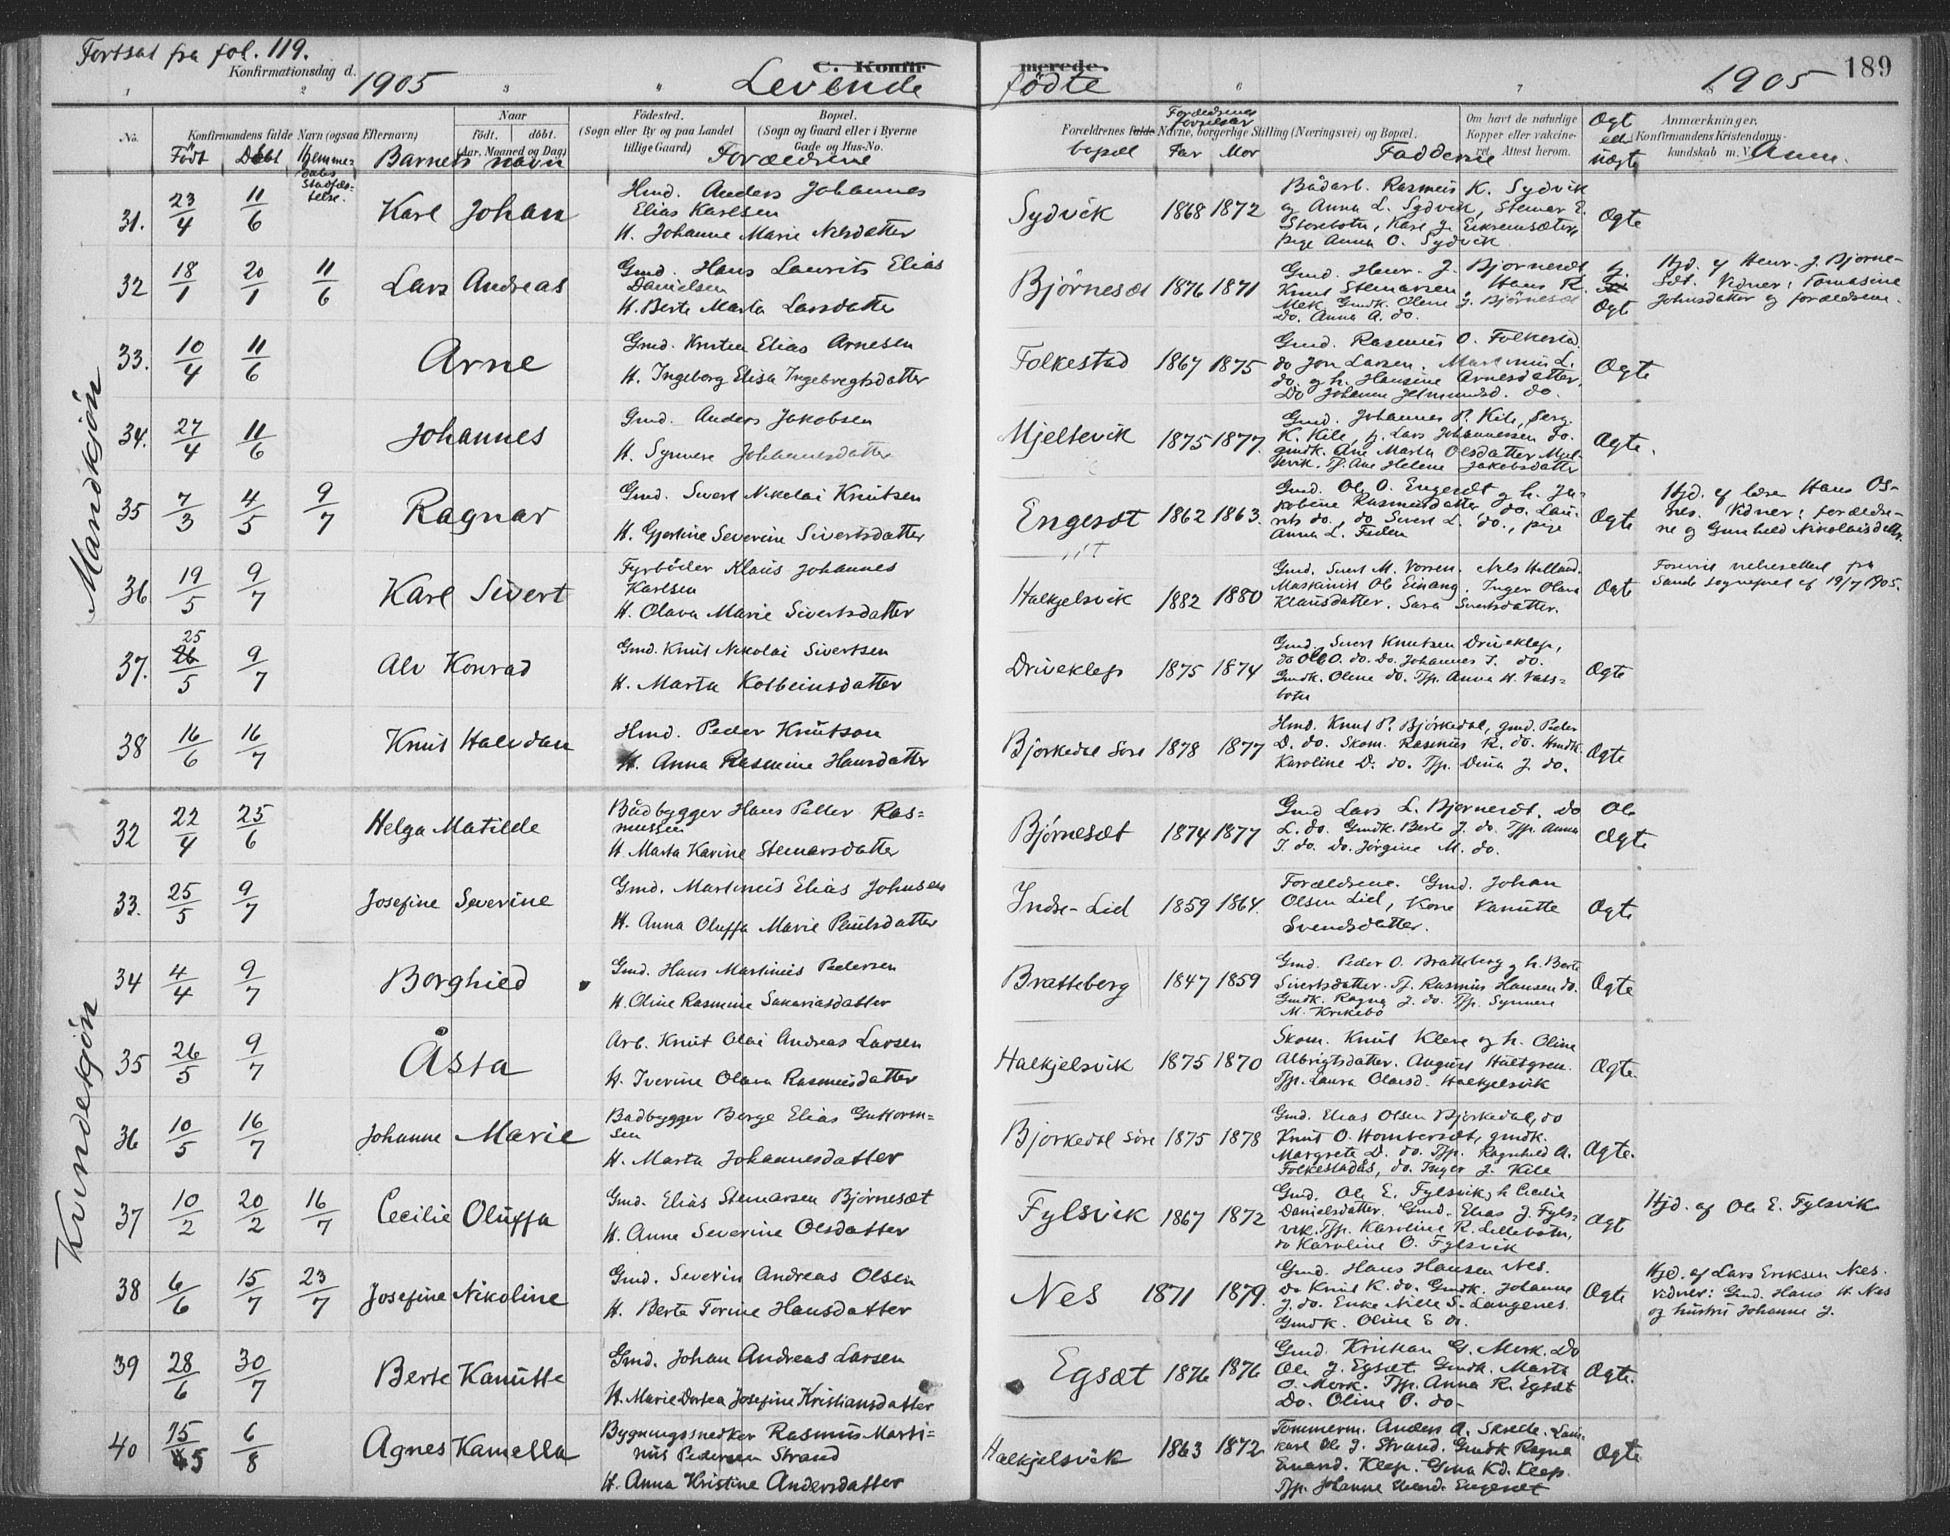 Fortsat fra fol. 119.
Konfirmationsdag d. 1905
C. Konfirmerede.
Levende fødte
1905
189
1 2 3 6 7
No.
Konfirmandens fulde Navn (ogsaa Efternavn)
Født Døbt Hjemmedåbs Stadfæstelse. Barnets navn
Naar
født. døbt.
(Aar, Maaned og Dag)
Fødested.
(Sogn eller By og paa Landet
tillige Gaard)
Bopæl.
(Sogn og Gaard eller i Byerne
Gade og Hus-No.
Forældrene
Forældrenes fulde Navne, borgerlige Stilling (Næringsvei) og Bopæl.
bopæl Far Mor
Fadderne
Om havt de naturlige
Kopper eller vaccineret, Attest herom.
Ægte
eller
Uægte
Anmerkninger,
(Konfirmandens Kristendoms-
kundskab m. V. Anm.
Mandkjøn
31. 23/4 11/6 Karl Johan
Hmd. Anders Johannes
Elias Karlsen
H. Johanne Marie Nilsdatter
Sydvik 1868 1872
Bådarb. Rasmus K. Sydvik
og Anna L. Sydvik, Steinar E.
Storebotn, Karl J. Eiksemsæter
pige Anna O. Sydvik
Ægte
32 18/1 20/1 11/6 Lars Andreas
Gmd. Hans Laurits Elias
Danielsen
H. Berte Marta Larsdatter
Bjørnesæt 1876 1871
Gmd. Henr. J. Bjørnesæt
Knut Steinarsen, Hans R.
Gmdk. Oline J. Bjørnesæt
Do. Anna A. do.
Ægte
Hjd. af Henr. J. Bjørne-
sæt. Vidner: Tomasine
Johnsdatter og forældrene.
33. 10/4 11/6 Arne
Gmd. Kristen Elias Arnesen
H. Ingeborg Elisa Ingebregtsdatter
Folkestad 1867 1875
Gmd. Rasmus O. Folkestad
do Jon Larsen. Martinus L.
do. og h. Hansine Arnesdatter.
Do Johanne do.
Ægte
34. 27/4 11/6 Johannes
Gmd. Anders Jakobsen
H. Synnøve Johannesdatter
Mjeltevik 1875 1877.
Gmd. Johannes P. Kile,
K. Kile, Lars Johannessen do.
gmdk. Ane Marta Olsdatter Mjel-
tevik. Tj. Ane Helene Jakobsdatter
Ægte.
35 7/3 4/5 9/7 Ragnar
Gmd. Sivert Nikolai Knutsen
H. Gjertine Severine Sivertsdatter
Engesæt 1862 1863.
Gmd. Ole O. Engesæt og h. Ja-
kobine Rasmusdatter, do. Lau-
rits do., do Sivert L. do., pige
Anna L.
Ægte
Hjd. af lærer Hans Os-
nes. Vidner: forældre-
ne og Gunhild Nikolaisdatter.
36 19/5 9/7 Karl Sivert
Fyrbøder Klaus Johannes
Karlsen
H. Olava Marie Sivertsdatter
Halkjelsvik 1882 1880
Gmd. Sivert M. Vorren. Nils Helland.
Maskinist Ole Einang. Inger Olava
Klausdatter. Sara Sivertsdatter.
Ægte
Forevist
Sande sogneprest af 19/7 1905.
37. 25/5 9/7 Alv Konrad
Gmd. Knut Nikolai Sivertsen
H. Marta Kolbeinsdatter
Driveklep 1875 1874
Gmd. Sivert Knutsen Driveklep,
do Ole O. do. Do. Johannes S. do.
Gmdk. Oline do. Tjp. Anna H. Vass-
botn
Ægte
38 16/6 16/7 Knut Halvdan
Hmd. Peder Knutson
H. Anna Rasmine Hansdatter
Bjørkedal Søre 1878 1877
Hmd. Knut P. Bjørkedal, gmd. Peder
D. do. Skom. Rasmus R. do. Hmdk.
Karoline D. do. Tjp. Dina J. do.
Ægte
Kvindekjøn
32 22/4 25/6 Helga Matilde
Bådbygger Hans Petter Ras-
mussen
H. Marta Karine Steinarsdatter
Bjørnesæt 1874 1877
Gmd Lars L. Bjørnesæt. Do Ole
L. do. Gmdk. Berte J. do. Tjp. Anna
J. do. do. Jørgine M. do.
Ægte
33. 25/5 9/7 Josefine Severine
Gmd. Martinus Elias Johnsen
H. Anna Oluffa Marie Paulsdatter
Indre-Lid 1859 1864.
Forældrene. Gmd. Johan
Olsen Lid, Kone Kanutte
Svendsdatter.
Ægte
34 4/4 9/7 Borghild
Gmd. Hans Martinus Pedersen
H. Oline Rasmine Sakariasdatter
Bratteberg 1847 1859
Gmd. Peder O. Bratteberg og h. Berte
Sivertsdatter. Tj. Rasmus Hansen do.
Gmdk. Ragna J. do. Tjp. Synnøve
M. Krikebø
Ægte
35 26/5 9/7 Åsta
Arb. Knut Olai Andreas Larsen
H. Iverine Olava Rasmusdatter
Halkjelsvik 1875 1870
Skom. Knut Kleve og h. Oline
Albrigtsdatter. August Hultgren.
Tjp. Laura Olavsd. Halkjelsvik
Ægte.
36 10/5 16/7 Johanne Marie
Bådbygger Børge Elias Guttorm-
sen
H. Marta Johannesdatter
Bjørkedal Søre 1875 1878
Gmd. Elias Olsen Bjørkedal, do
Knut O. Homberset, gmdk.
Margrete D. do. Tjp. Ragnhild A.
Folkestadås, do. Inger J. Kile
Ægte.
37 10/2 20/2 16/7 Cecilie Oluffa
Gmd. Elias Steinarsen Bjørnesæt
H. Anne Severine Olsdatter
Fylsvik 1867 1872
Gmd. Ole E. Fylsvik, h. Cecilie
Danielsdatter. Gmd. Elias J. Fyls-
vik. Tjp. Karoline R. Lillebotn,
do Karoline O. Fylsvik
Ægte
Hjd. af Ole E. Fylsvik
38 6/6 15/7 23/7 Josefine Nikoline
Gmd. Severin Andreas Olsen
H. Berte Torine Hansdatter
Nes 1871 1879.
Gmd. Hans Hansen Nes.
Do Knut K. do. Gmdk. Johanne
J. do. Enke Nille S. Langenes.
Gmdk. Oline E do.
Ægte
Hjd. af Lars Eriksen Nes.
Vidner: Gmd. Hans H. Nes
og hustru Johanne J.
39 28/6 30/7 Berte Kanutte
Gmd. Johan Andreas Larsen
H. Marie Dortea Josefine Kristiansdatter
Egsæt 1876 1876
Gmd. Kristian G. Mork. Do
Ole J. Egsæt Gmdk. Marta
O. Mork. Tjp. Anna R. Egsæt
Do. Oline O. do.
Ægte.
40 15/5 6/8 Agnes Kamella
Bygningssnedker Rasmus Marti-
nus Pedersen Strand
H. Anna Kristine Andersdatter
Halkjelsvik 1863 1872
Tømmerm. Anders A. Skrede.
Ole J. Strand. Gmdk Ragna
Klep. Gina Kd. Klep.
Tjp. Johanne Engeset
Ægte